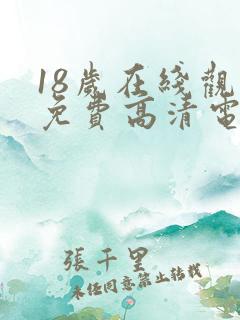 18歲在綫觀
免費高清電
張千里
未任同意禁止转载